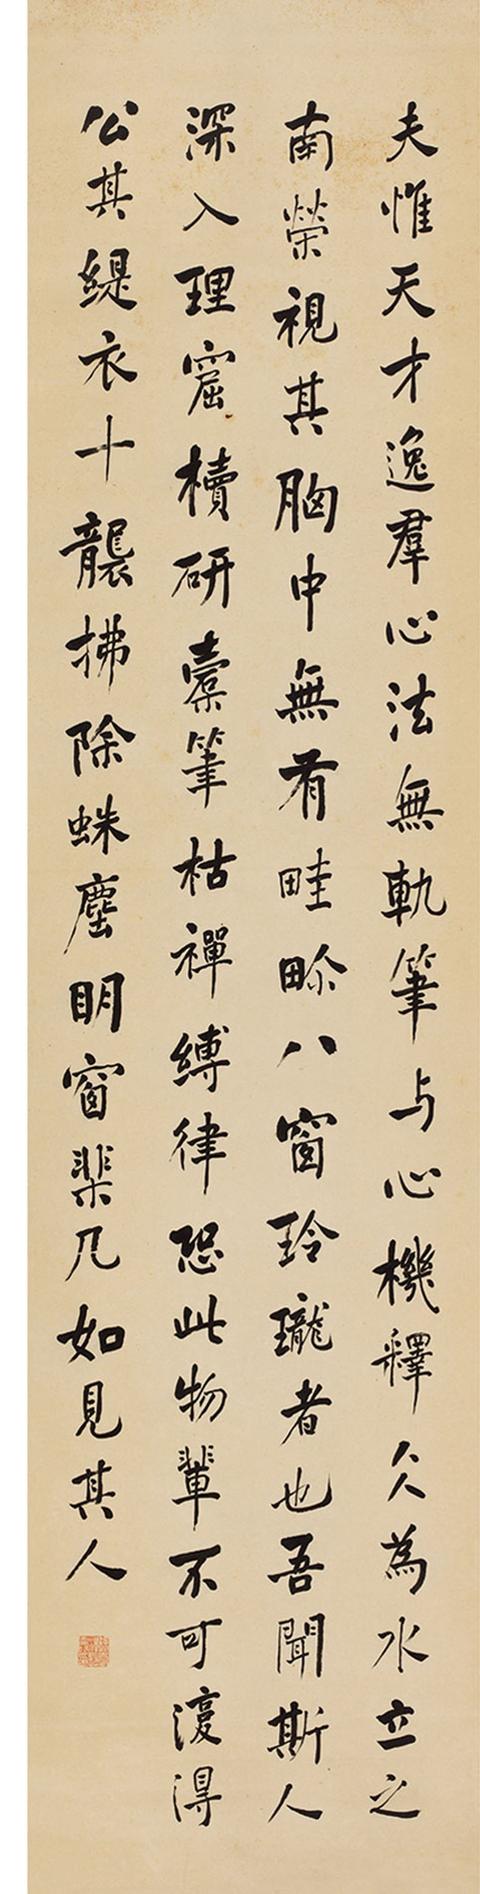 夫惟天才逸羣心法無軌筆与心機釋仌為水立之
南榮視其胸中無有畦畛八窗玲瓏者也吾聞斯人
深入理窟櫝研囊筆枯禪縛律恐此物輩不可復得
公其緹衣十襲拂除蛛塵明窗棐几如見其人